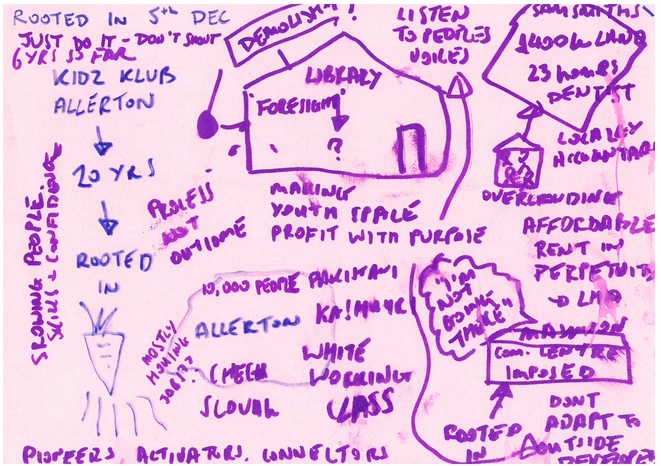 ROOTED IN 5th DEC
JUST DO IT - DON'T SHOUT
6 YRS SO FAR
KIDZ KLUB
ALLERTON
20 YRS
ROOTED
IN
GROWING PEOPLE.
SKILLS + CONFIDENCE
DEMOLISH?!
LIBRARY
"FORESIGHT"
?
LISTEN
TO PEOPLES
VOICES
SAM SMITHS
£400k LAND
23 hours
DENTIST
LOCALLY
OVERCROWDING
AFFORDABLE
RENT IN
PERPETUITY
MAKING
YOUTH SPACE
PROFIT WITH PURPOSE
PROCESS
NOT
OUTCOME
10,000 PEOPLE
ALLERTON
MOSTLY
HOUSING
JOBS??
CHECH
SLOVAK
PAKISTANI
KASHMIR
WHITE
WORKING
CLASS
"I'M
NOT
GOING
THERE"
MANSION
COM. CENTRE
IMPOSED
ROOTED
IN
DONT
ADAPT TO
OUTSIDE
PIONEERS, ACTIVATORS, CONNECTORS